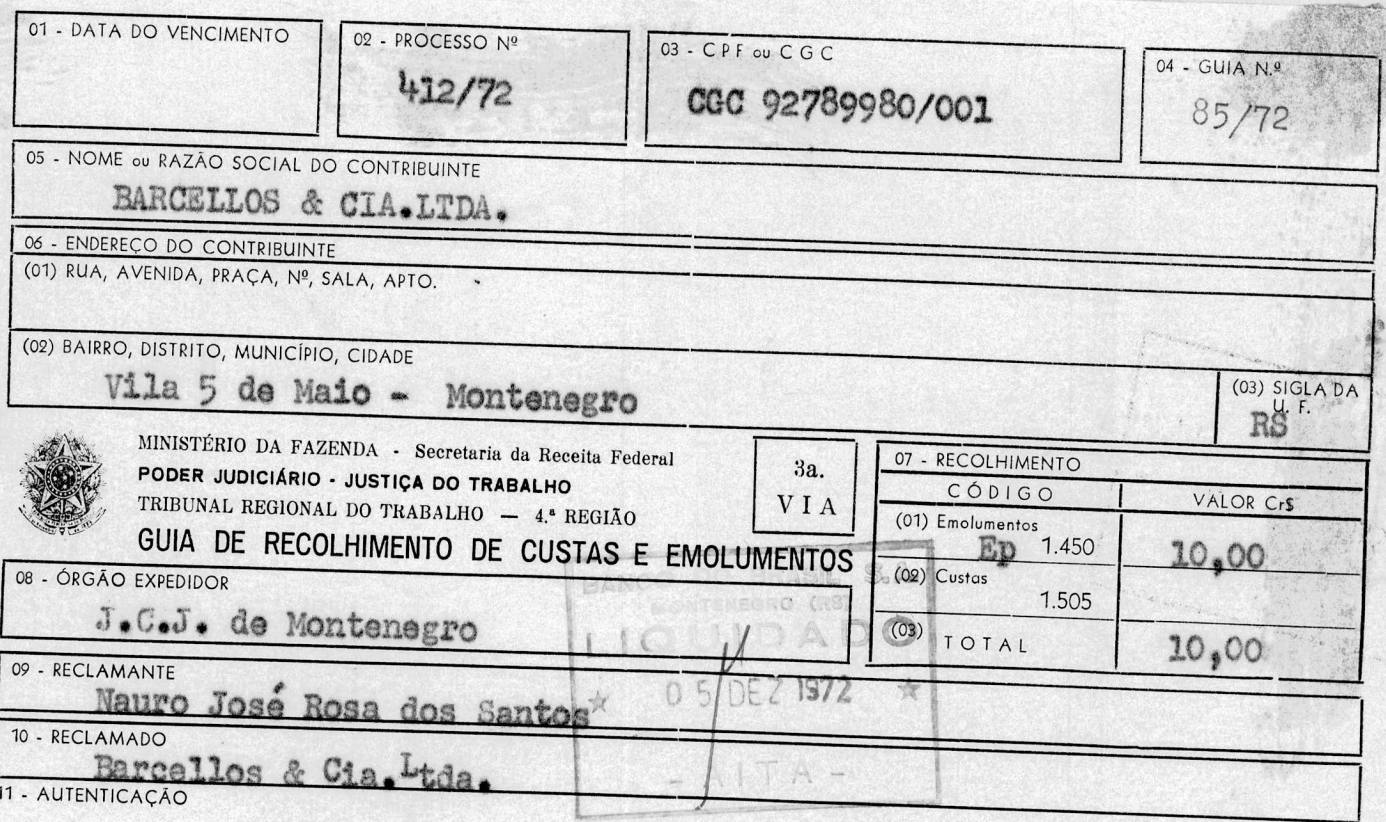 01 - DATA DO VENCIMENTO
02 - PROCESSO Nº
412/72
03 - CPF ou CGC
CGC 92789980/001
04 - GUIA N.º
85/72
05 - NOME ou RAZÃO SOCIAL DO CONTRIBUINTE
BARCELLOS & CIA.LTDA.
06 - ENDEREÇO DO CONTRIBUINTE
(01) RUA, AVENIDA, PRAÇA, Nº, SALA, APTO.
(02) BAIRRO, DISTRITO, MUNICÍPIO, CIDADE
Vila 5 de Maio - Montenegro
(03) SIGLA DA
U. F.
RS
MINISTÉRIO DA FAZENDA - Secretaria da Receita Federal
PODER JUDICIÁRIO - JUSTIÇA DO TRABALHO
TRIBUNAL REGIONAL DO TRABALHO — 4.ª REGIÃO
GUIA DE RECOLHIMENTO DE CUSTAS E EMOLUMENTOS
3a.
VIA
07 - RECOLHIMENTO
CÓDIGO VALOR Cr$
(01) Emolumentos
Ep 1.450 10,00
(02) Custas
1.505
(03) TOTAL 10,00
08 - ÓRGÃO EXPEDIDOR
J.C.J. de Montenegro
BANCO DO BRASIL S.A.
MONTENEGRO (RS)
LIQUIDADO
05 DEZ 1972
09 - RECLAMANTE
Nauro José Rosa dos Santos
10 - RECLAMADO
Barcellos & Cia.Ltda.
11 - AUTENTICAÇÃO